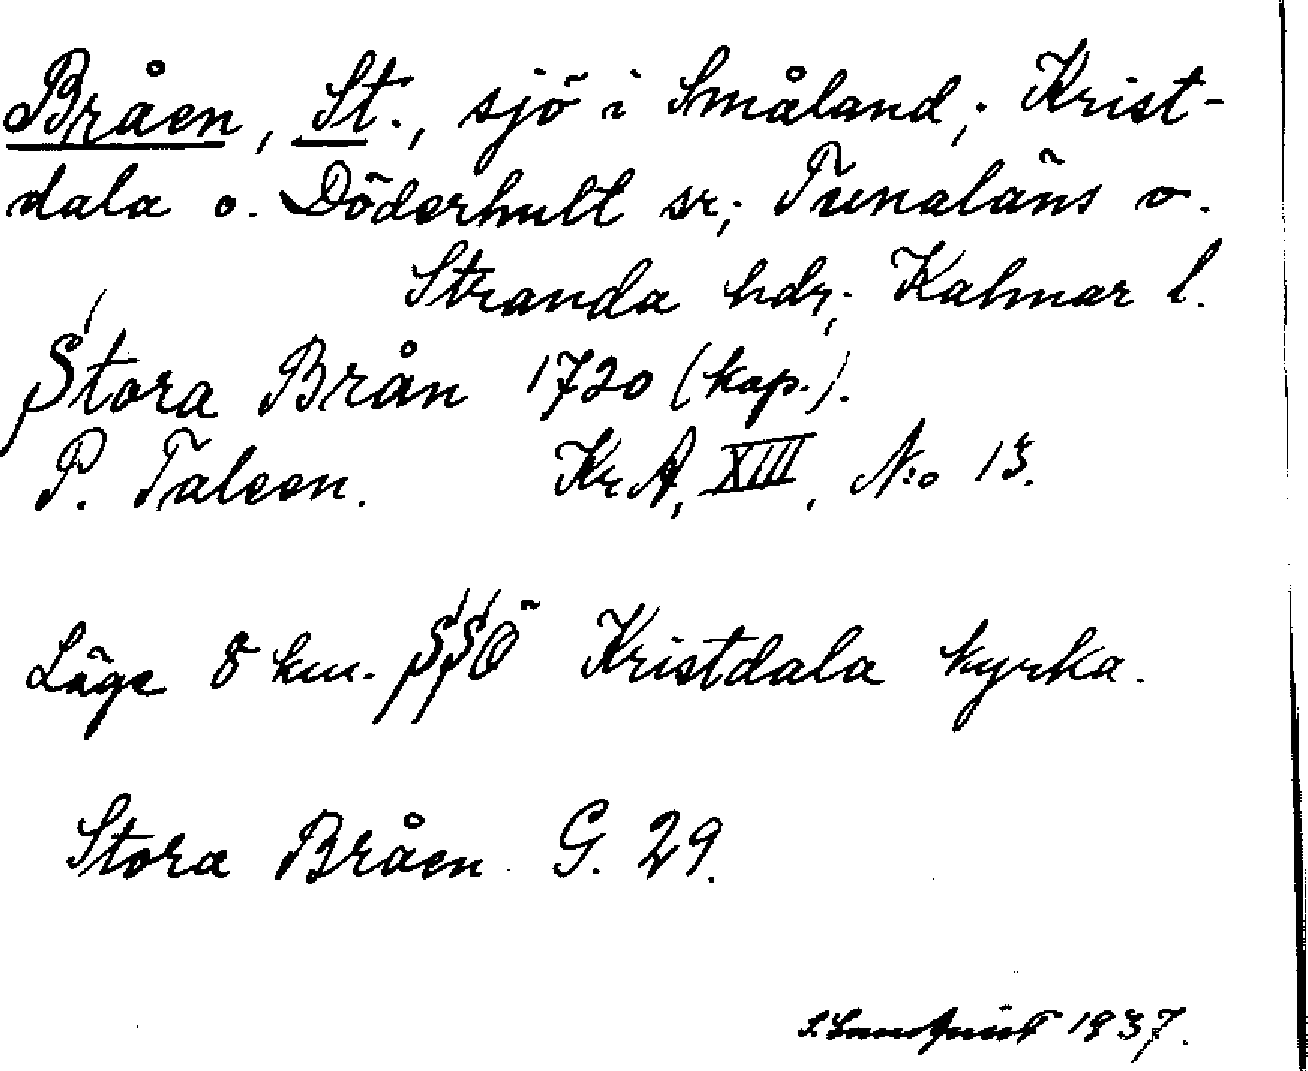 Bråen, St., sjö i Småland; Krist-
dala o. Döderhult sr; Tunaläns o.
Stranda hdr; Kalmar l.
Stora Brån 1720 (kop.).
P. Taleen. KrA, XIII, N:o 13.
Läge 8 km. SSÖ Kristdala kyrka.
Stora Bråen G. 29.
1937.